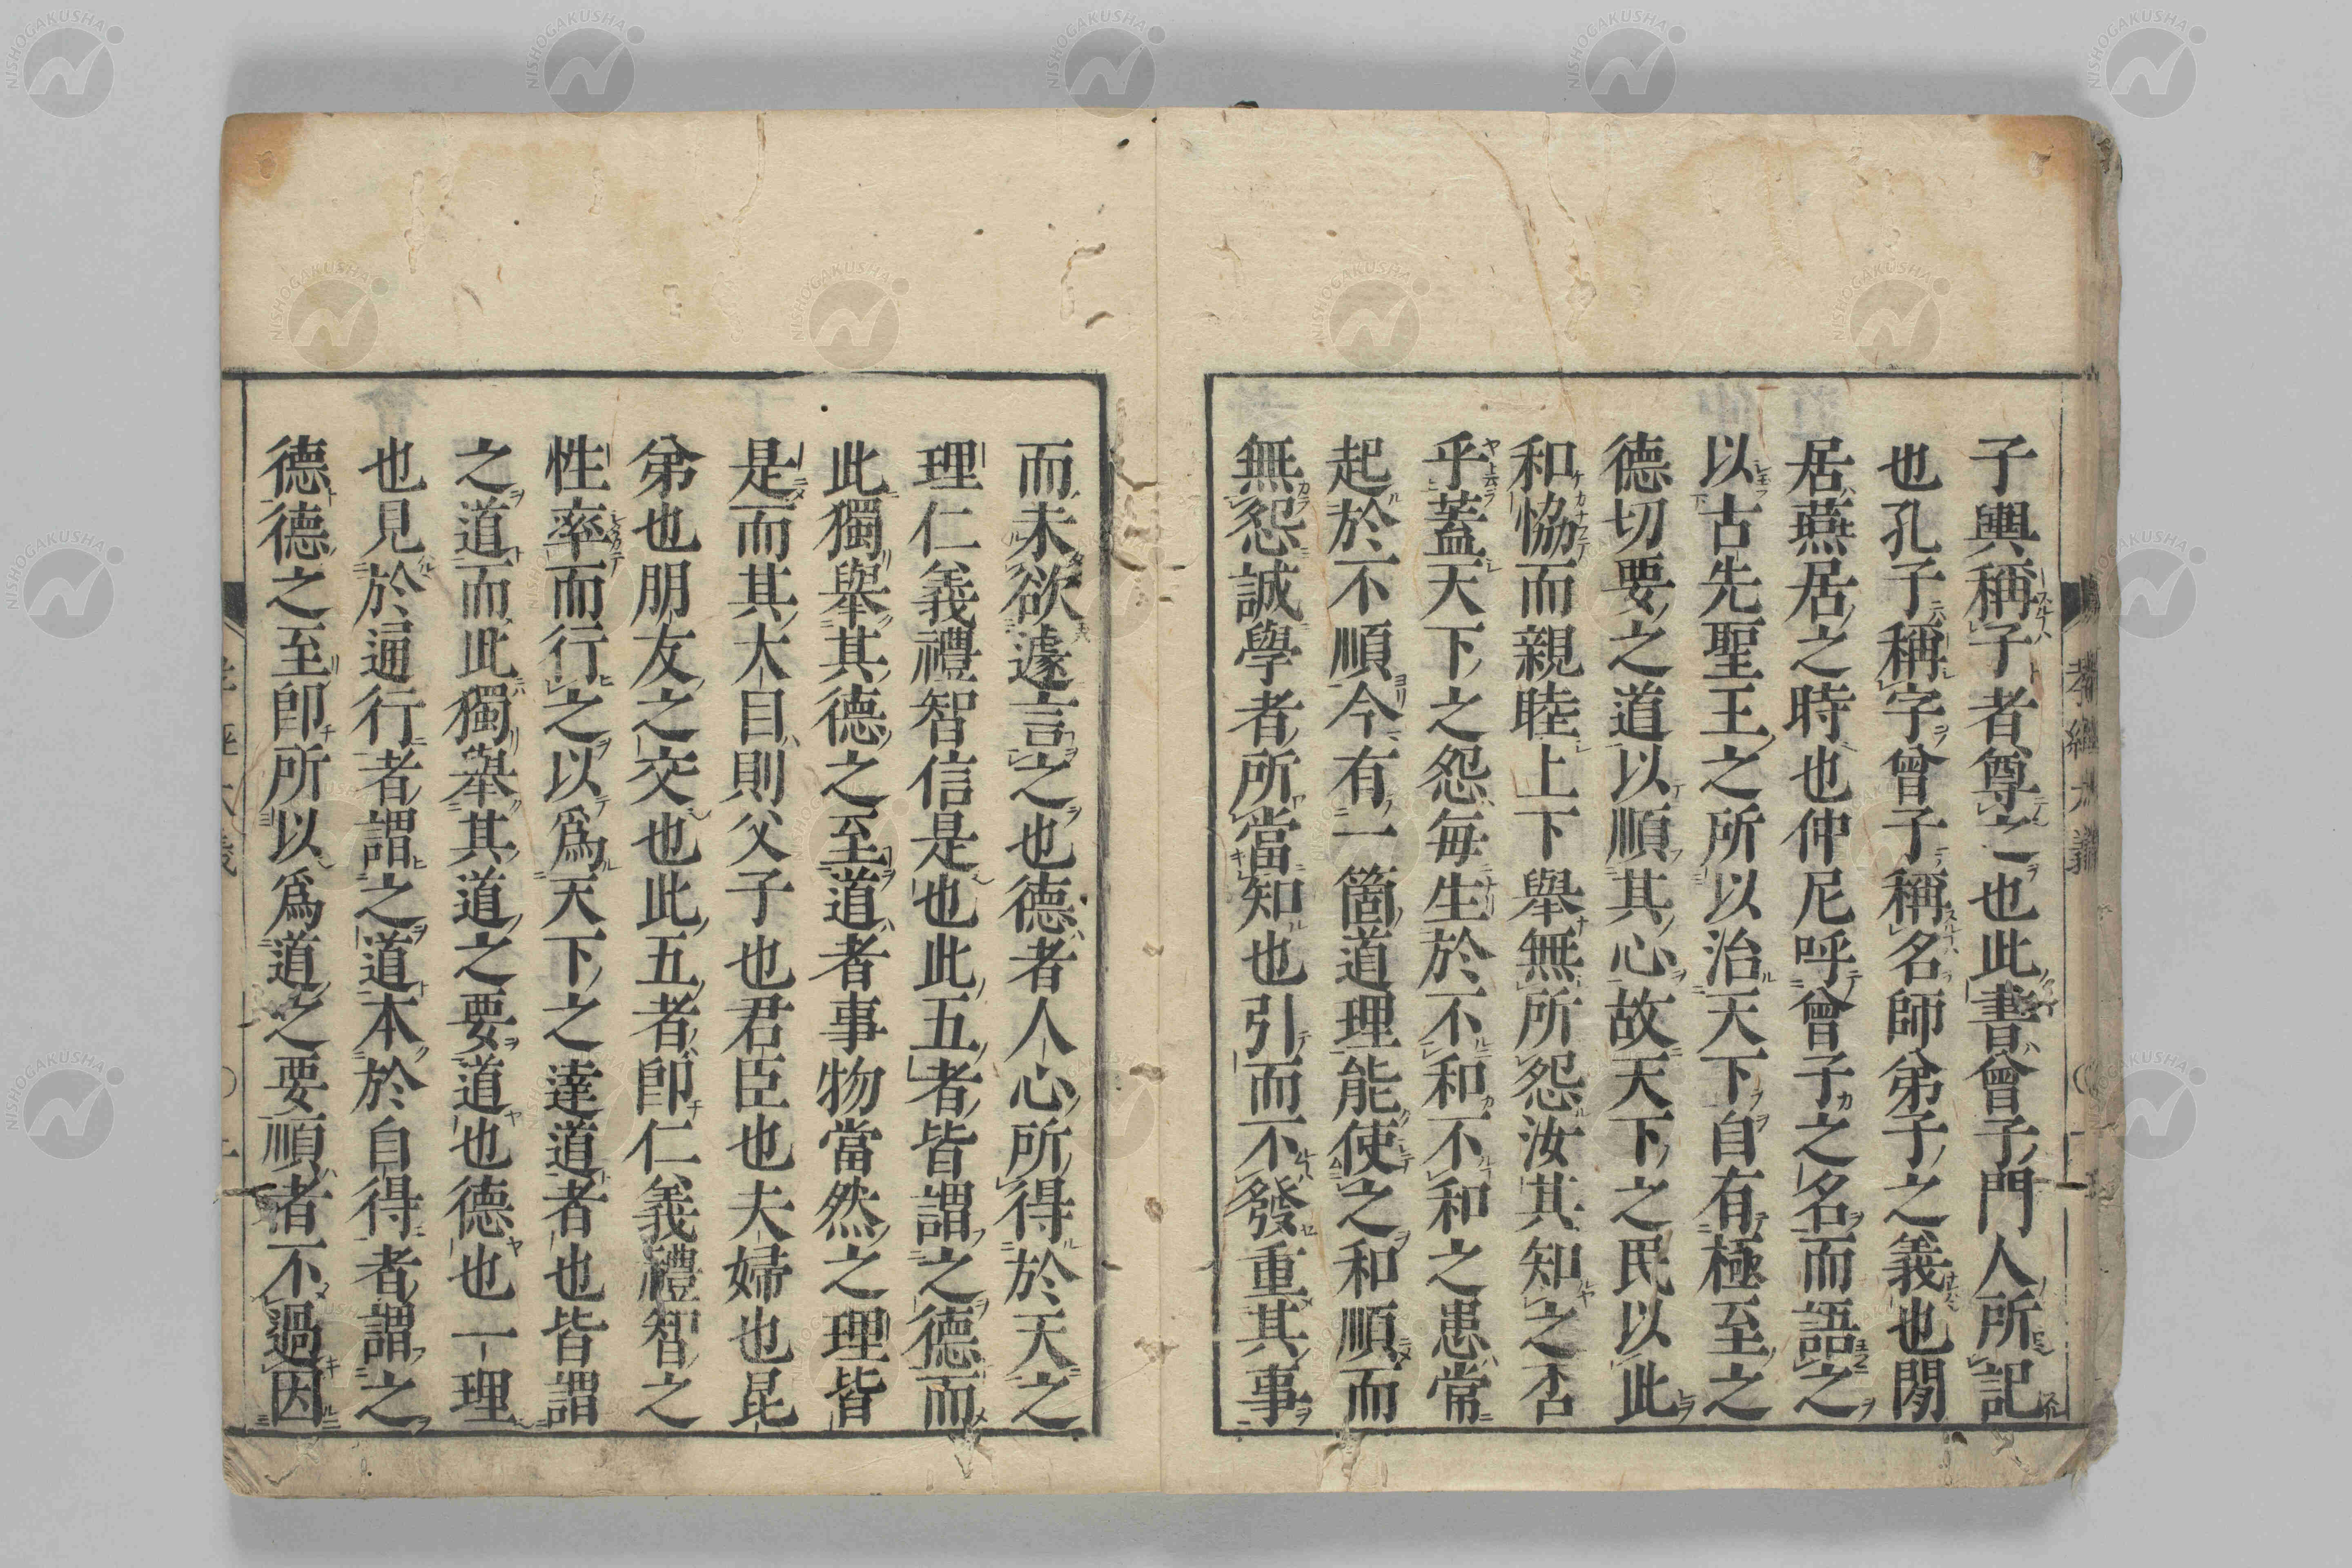 子輿稱子者尊之也此書曾子門人所記
也孔子稱字曾子稱名師弟子之義也閒
居燕居之時也仲尼呼曾子之名而語之
以古先聖王之所以治天下自有極至之
德切要之道以順其心故天下之民以此
和恊而親睦上下舉無所怨汝其知之否
乎蓋天下之怨每生於不和不和之患常
起於不順今有一箇道理能使之和順而
無怨誠學者所當知也引而不發重其事
而未欲遽言之也德者人心所得於天之
理仁義禮智信是也此五者皆謂之德而
此獨舉其德之至道者事物當然之理皆
是而其大目則父子也君臣也夫婦也昆
弟也朋友之交也此五者即仁義禮智之
性率而行之以爲天下之達道者也皆謂
之道而此獨舉其道之要道也德也一理
也見於通行者謂之道本於自得者謂之
德德之至即所以爲道之要順者不過因